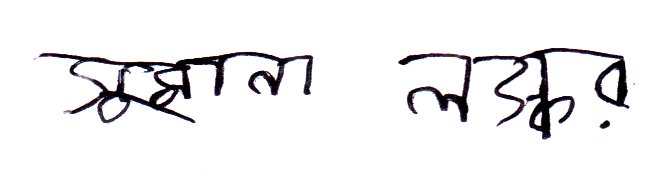 সুহানা লস্কর